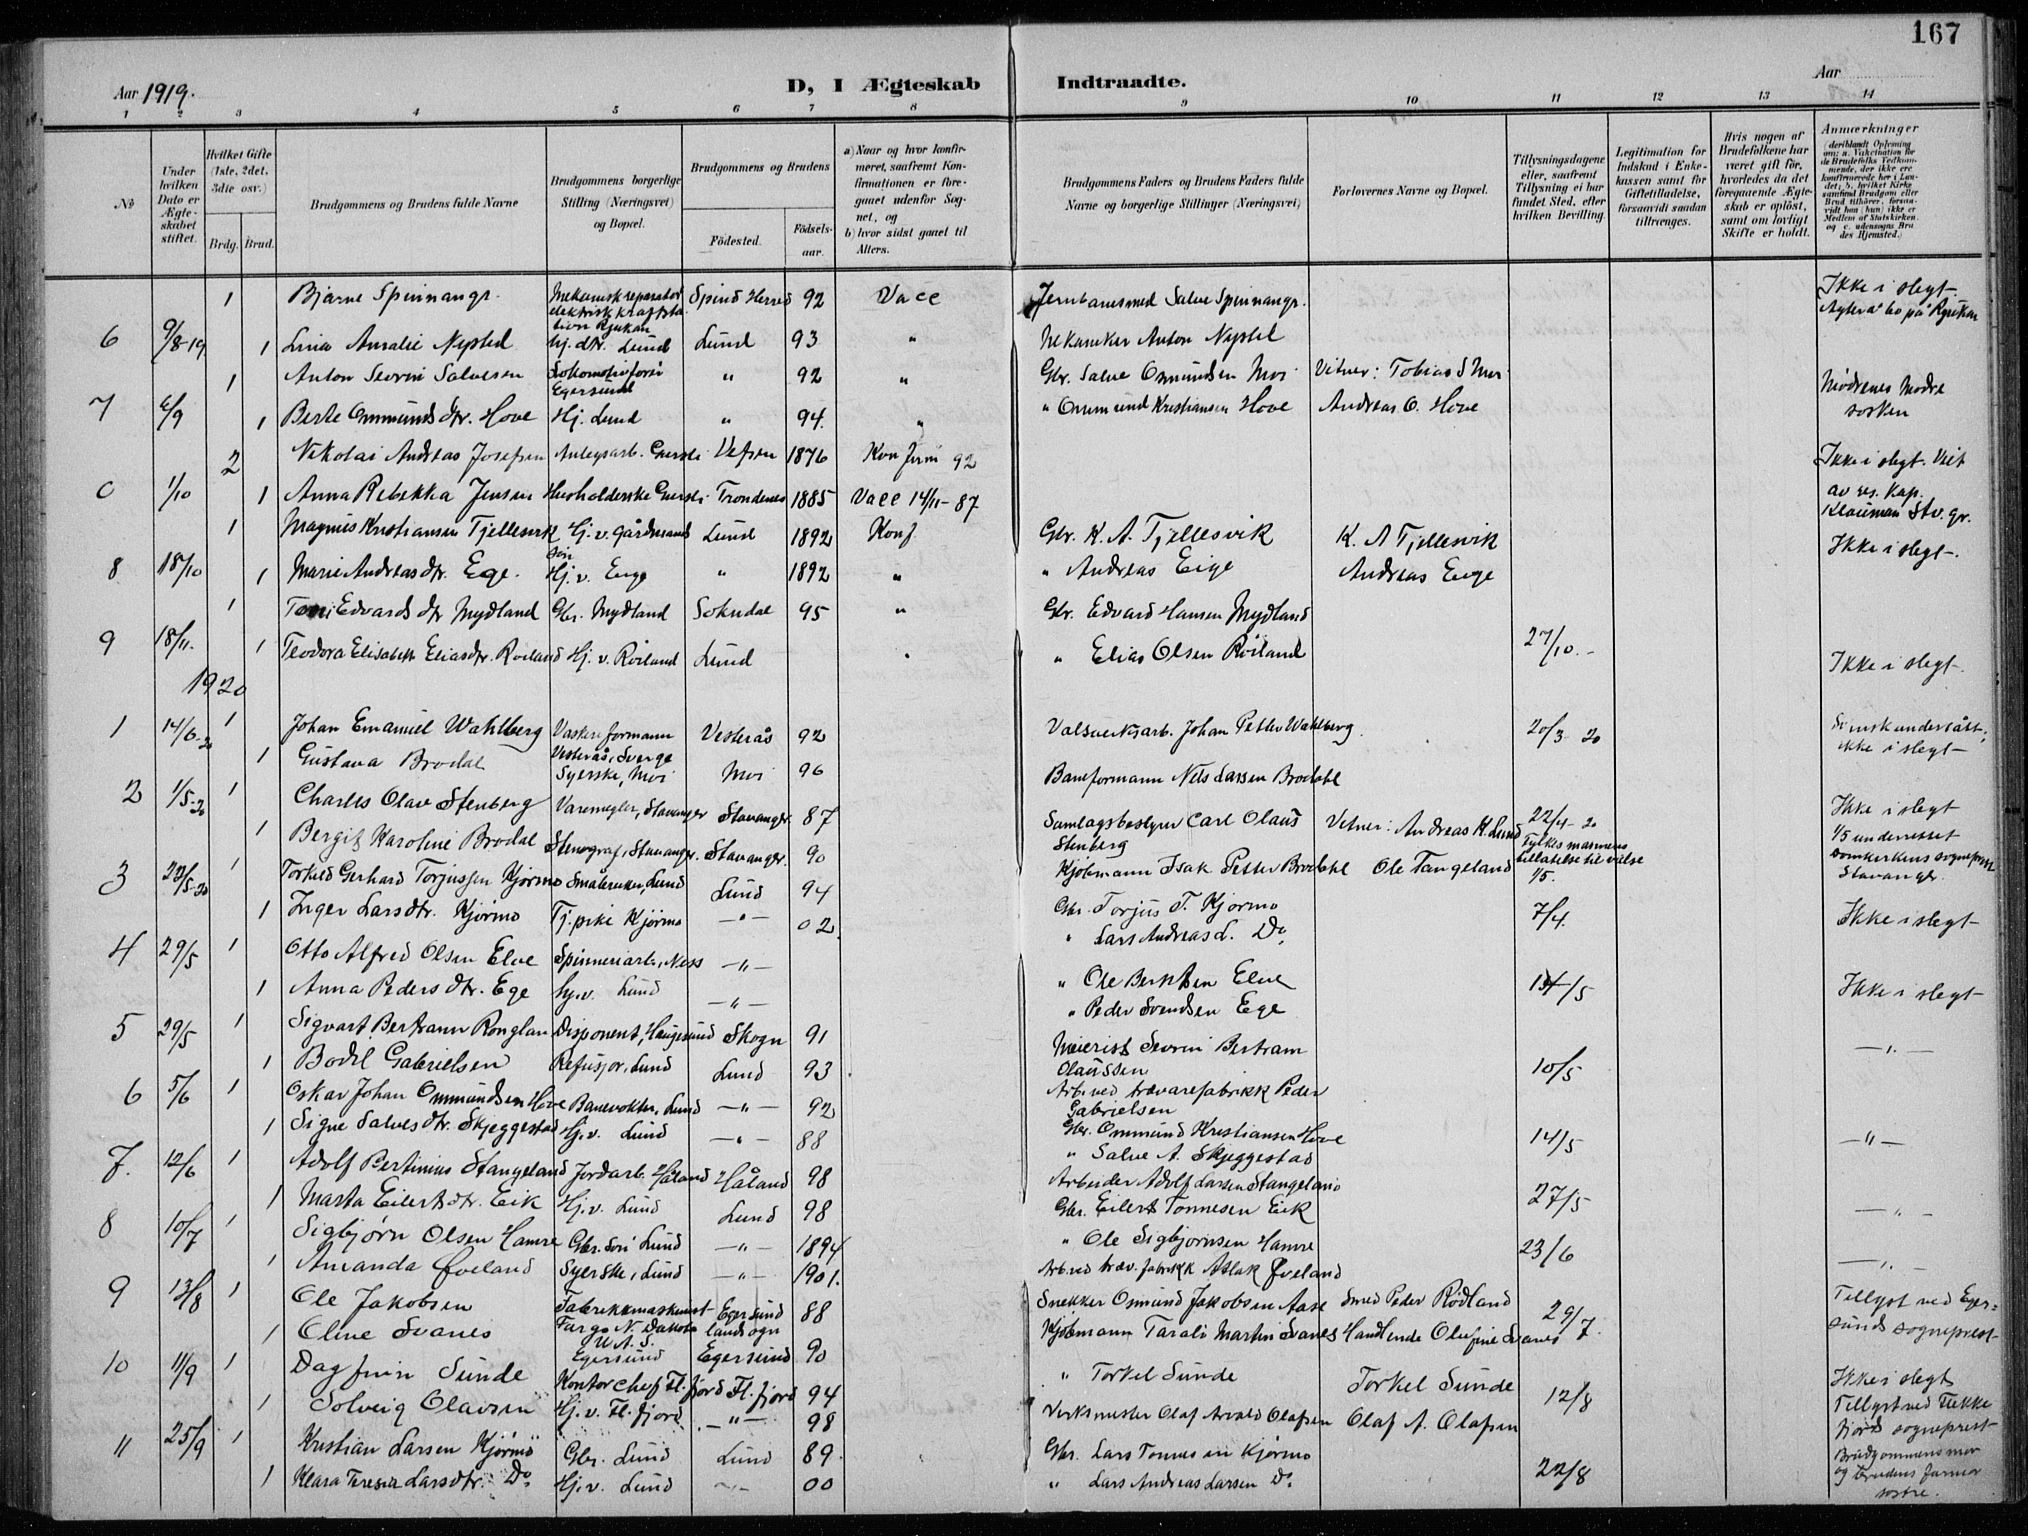 167
Aar 1919.
D, I Ægteskab Indtraadte.
Aar
1 2 3 4 5 6 7 8 9 10 11 12 13 14
No
Under hvilken Dato er Ægteskabet stiftet.
Hvilket Gifte (1ste, 2det, 3die osv.)
Brdg. Brud.
Brudgommens og Brudens fulde Navne
Brudgommens borgerlige Stilling (Næringsvei) og Bopæl.
Brudgommens og Brudens
Fødested. Fødselsaar.
a) Naar og hvor konfirmeret, saafremt Konfirmationen er foregaaet udenfor Sognet, og
b) hvor sidst gaaet til Alters.
Brudgommens Faders og Brudens Faders fulde Navne og borgerlige Stillinger (Næringsvei)
Forlovernes Navne og Bopæl.
Tillysningsdagene eller, saafremt Tillysning ei har fundet Sted, efter hvilken Bevilling.
Legitimation for Indskud i Enkekassen samt for Giftetilladelse, forsaavidt saadan tiltrænges.
Hvis nogen af Brudefolkene har været gift før, hvorledes da det foregaaende Ægteskab er opløst, samt om lovligt Skifte er holdt.
Anmærkninger (deriblandt Oplysning om: a. Vaccination for de Brudefolks Vedkommende, der ikke ere konfirmerede her i Landet; b. hvilket Kirkesamfund Brudgom eller Brud tilhører, forsaavidt han (hun) ikke er Medlem af Statskirken, og c. udensogns Brudes Hjemsted.)
1 Bjarne Spinnangr. Mekanisk reparatør elektrisk kraftstation Rjukan Spind Herred 92 Vacc Jernbanesmed Salve Spinnangr. Ikke i slegt.
6 9/8-19 1 Lina Amalie Nysted Hj. dtr. Lund Lund 93 " Mekaniker Anton Nysted
1 Anton Severin Salvesen Lokomotivfyrbø Egersund " 92 " Gbr. Salve Omundsen Moi Vitner: Tobias S Moi Mødrenes Mødre
7 6/9 1 Berte Ommundsdtr. Hove Hj. Lund " 94. " " Ommund Kristiansen Hove Andreas O. Hove søsken
2 Nikolai Andreas Josefsen Anlegsarb. Vefsen 1876 Konfirm 92 Ikke i slegt. Viet
0 1/10 1 Anna Rebekka Jensen Husholderske Trondenes 1885 Vacc 14/11-87 av res. kap.
1 Magnus Kristiansen Tjellesvik Hj. v. Gårdmands søn Lund 1892 Konf Gbr. K. A. Tjellesvik K. A Tjellesvik Ikke i slegt.
8 18/10 1 Marie Andreasdtr. Ege. Hj. v. Eige " 1892 " " Andreas Eige Andreas Eige
1 Toni Edvardsdtr Mydland Gbr. Mydland Sokndal 95 " Gbr. Edvard Hansen Mydland
9 18/11. 1 Teodora Elisabeth Eliasdtr. Røiland Hj. v. Røiland Lund " " Elias Olsen Røiland 27/10.- Ikke i slegt.
1920
1 14/6-20 1 Johan Emanuel Wahlberg Vaskeriformann Vesterås, Sverge Vesterås 92 Valsverksarb. Johan Petter Wahlberg. 20/3-20 Svensk undersått, ikke i slegt
1 Gustava Brodal Syerske, Moi Moi 96 Baneformann Nels Larsen Brodahl
2 1/5-20 1 Charles Olav Stenberg Varemegler, Stavanger Stavanger. 87 Samlagsbestyrer Carl Olaus Stenberg Vitner: Andreas K. Lund 22/4-20 Fylkesmannens tillatelse til vielse 1/5. Ikke i slegt
1 Bergit Karoline Brodal Stenograf, Stavanger. Stavanger. 90 Kjøbmann Isak Petter Brodahl Ole Tangeland 1/5 underrettet domkirkens sogneprest Stavanger
3 22/5-20 1 Torkild Gerhard Torjussen Kjørmo Småbruker, Lund Lund 94 Gbr. Torjus T. Kjørmo 7/4. Ikke i slegt
1 Inger Larsdtr. Kjørmo Tj. pike Kjørmo -"- 02. " Lars Andreas L. Do
4 29/5 1 Otto Alfred Olsen Elve Spinneriarb., Ness -"- " Ole Berntsen Elve 14/5 Ikke i slegt
1 Anna Pedersdtr. Ege Hj. v. Lund -"- " Peder Svendsen Ege
5 29/5 1 Sigvart Bertram Ronglan Disponent, Haugesund Skogn 91 Meierist Severin Bertram Olaussen 10/5 -"-
1 Bodil Gabrielsen Refusjor, Lund Lund 93 Arb. ved trævarefabrikk Peder Gabrielsen
6 5/6 1 Oskar Johan Ommundsen Hove Banevokter, Lund -"- 92 Gbr. Ommund Kristiansen Hove 14/5 -"-
1 Signe Salvesdtr. Skjeggestad Hj. v. Lund -"- 88 " Salve A. Skjeggestad
7. 12/6 1 Adolf Bertinius Stangeland Jordarb. Håland Håland 98 Arbeider Adolf Larsen Stangeland 27/5 -"-
1 Marta Eilertsdtr. Eik Hj. v. Lund Lund 98 Gbr. Eilert Tønnesen Eik
8 10/7 1 Sigbjørn Olsen Hamre Gbr. søn Lund -"- 1894 " Ole Sigbjørnsen Hamre 23/6 -"-
1 Amanda Øveland Syerske, Lund -"- 1901. Arb. ved træv. fabrikk Aslak Øveland
9 13/8 1 Ole Jakobsen Fabrikkmaskinist Fargo N. Dakota U. A. S. Egersund landsogn 88 Snekker Omund Jakobsen Aase Smed Peder Rødland 29/7. Tillyst ved Egersunds sogneprest
1 Oline Svanes Egersund Egersund 90 Kjøbmann Tarald Martin Svanes Handlende Olufine Svanes
10 11/9 1 Dagfinn Sunde Kontorchef Fl. fjord Fl. fjord 94 " Torkel Sunde Torkel Sunde 12/8 Ikke i slegt
1 Solveig Olavsen Hj. v. Fl. fjord. -"- 98 Verksmester Olaf Arvald Olafsen Olaf A. Olafsen Tillyst ved Flekkefjord sogneprest
11 25/9 1 Kristian Larsen Kjørmo Gbr. Lund Lund 89. Gbr. Lars Tønnesen Kjørmo 22/8 Brudgommens mor og brudens farmor søstre.
1 Klara Teresia Larsdtr. Do Hj. v. Lund -"- 00 " Lars Andreas Larsen Do